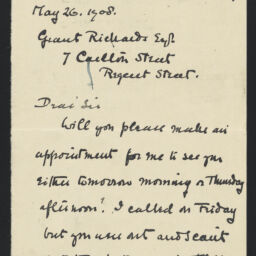 May 26. 1908.
Grant Richards Esq.
7 Carlton Street
Regent Street.
Dear Sir
Will you please make an
appointment for me to see you
either tomorrow morning or Thursday
afternoon? I called on Friday
but you were out and I can't